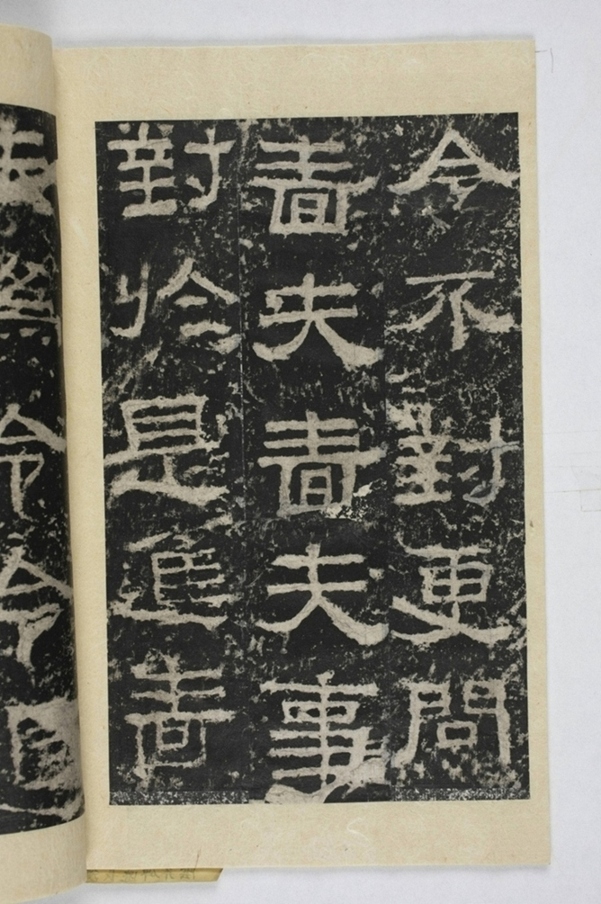 令不對更問
嗇夫嗇夫事
對於是進嗇